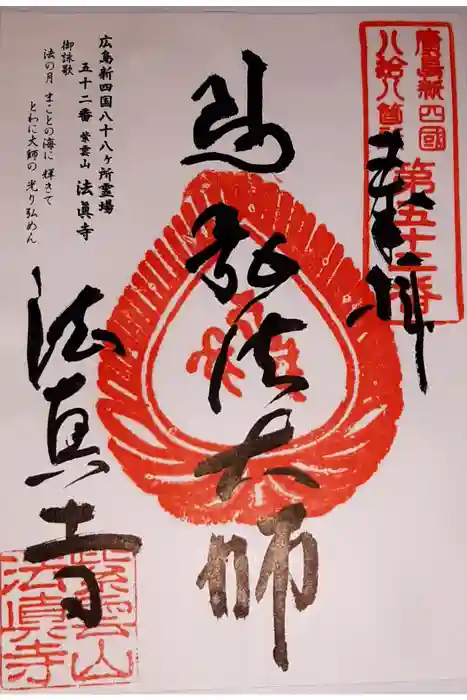 廣島新四國
八拾八箇所
第五十二番
奉拝
弘法大師
広島新四国八十八ヶ所霊場
五十二番 紫雲山 法眞寺
御詠歌
法の月 まことの海に 輝きて
とわに大師の 光り弘めん
法真寺
紫雲山
法眞寺